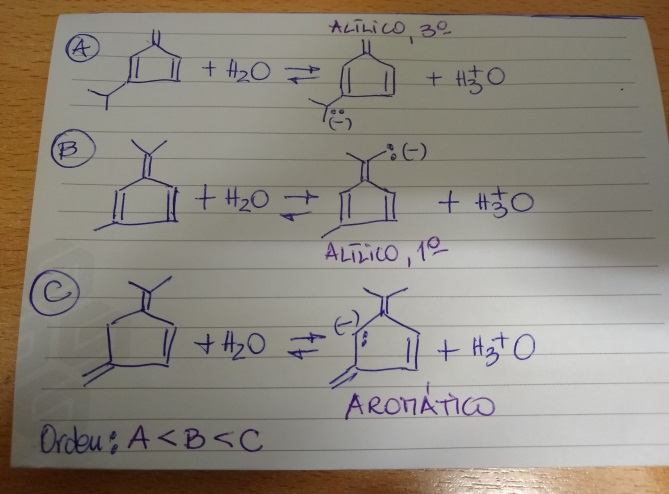 ALÍLICO, 3º
A + H2O ⇌ (-) + H3+O
B + H2O ⇌ (-) + H3+O
ALÍLICO, 1º
C + H2O ⇌ (-) + H3+O
AROMÁTICO
Orden: A < B < C